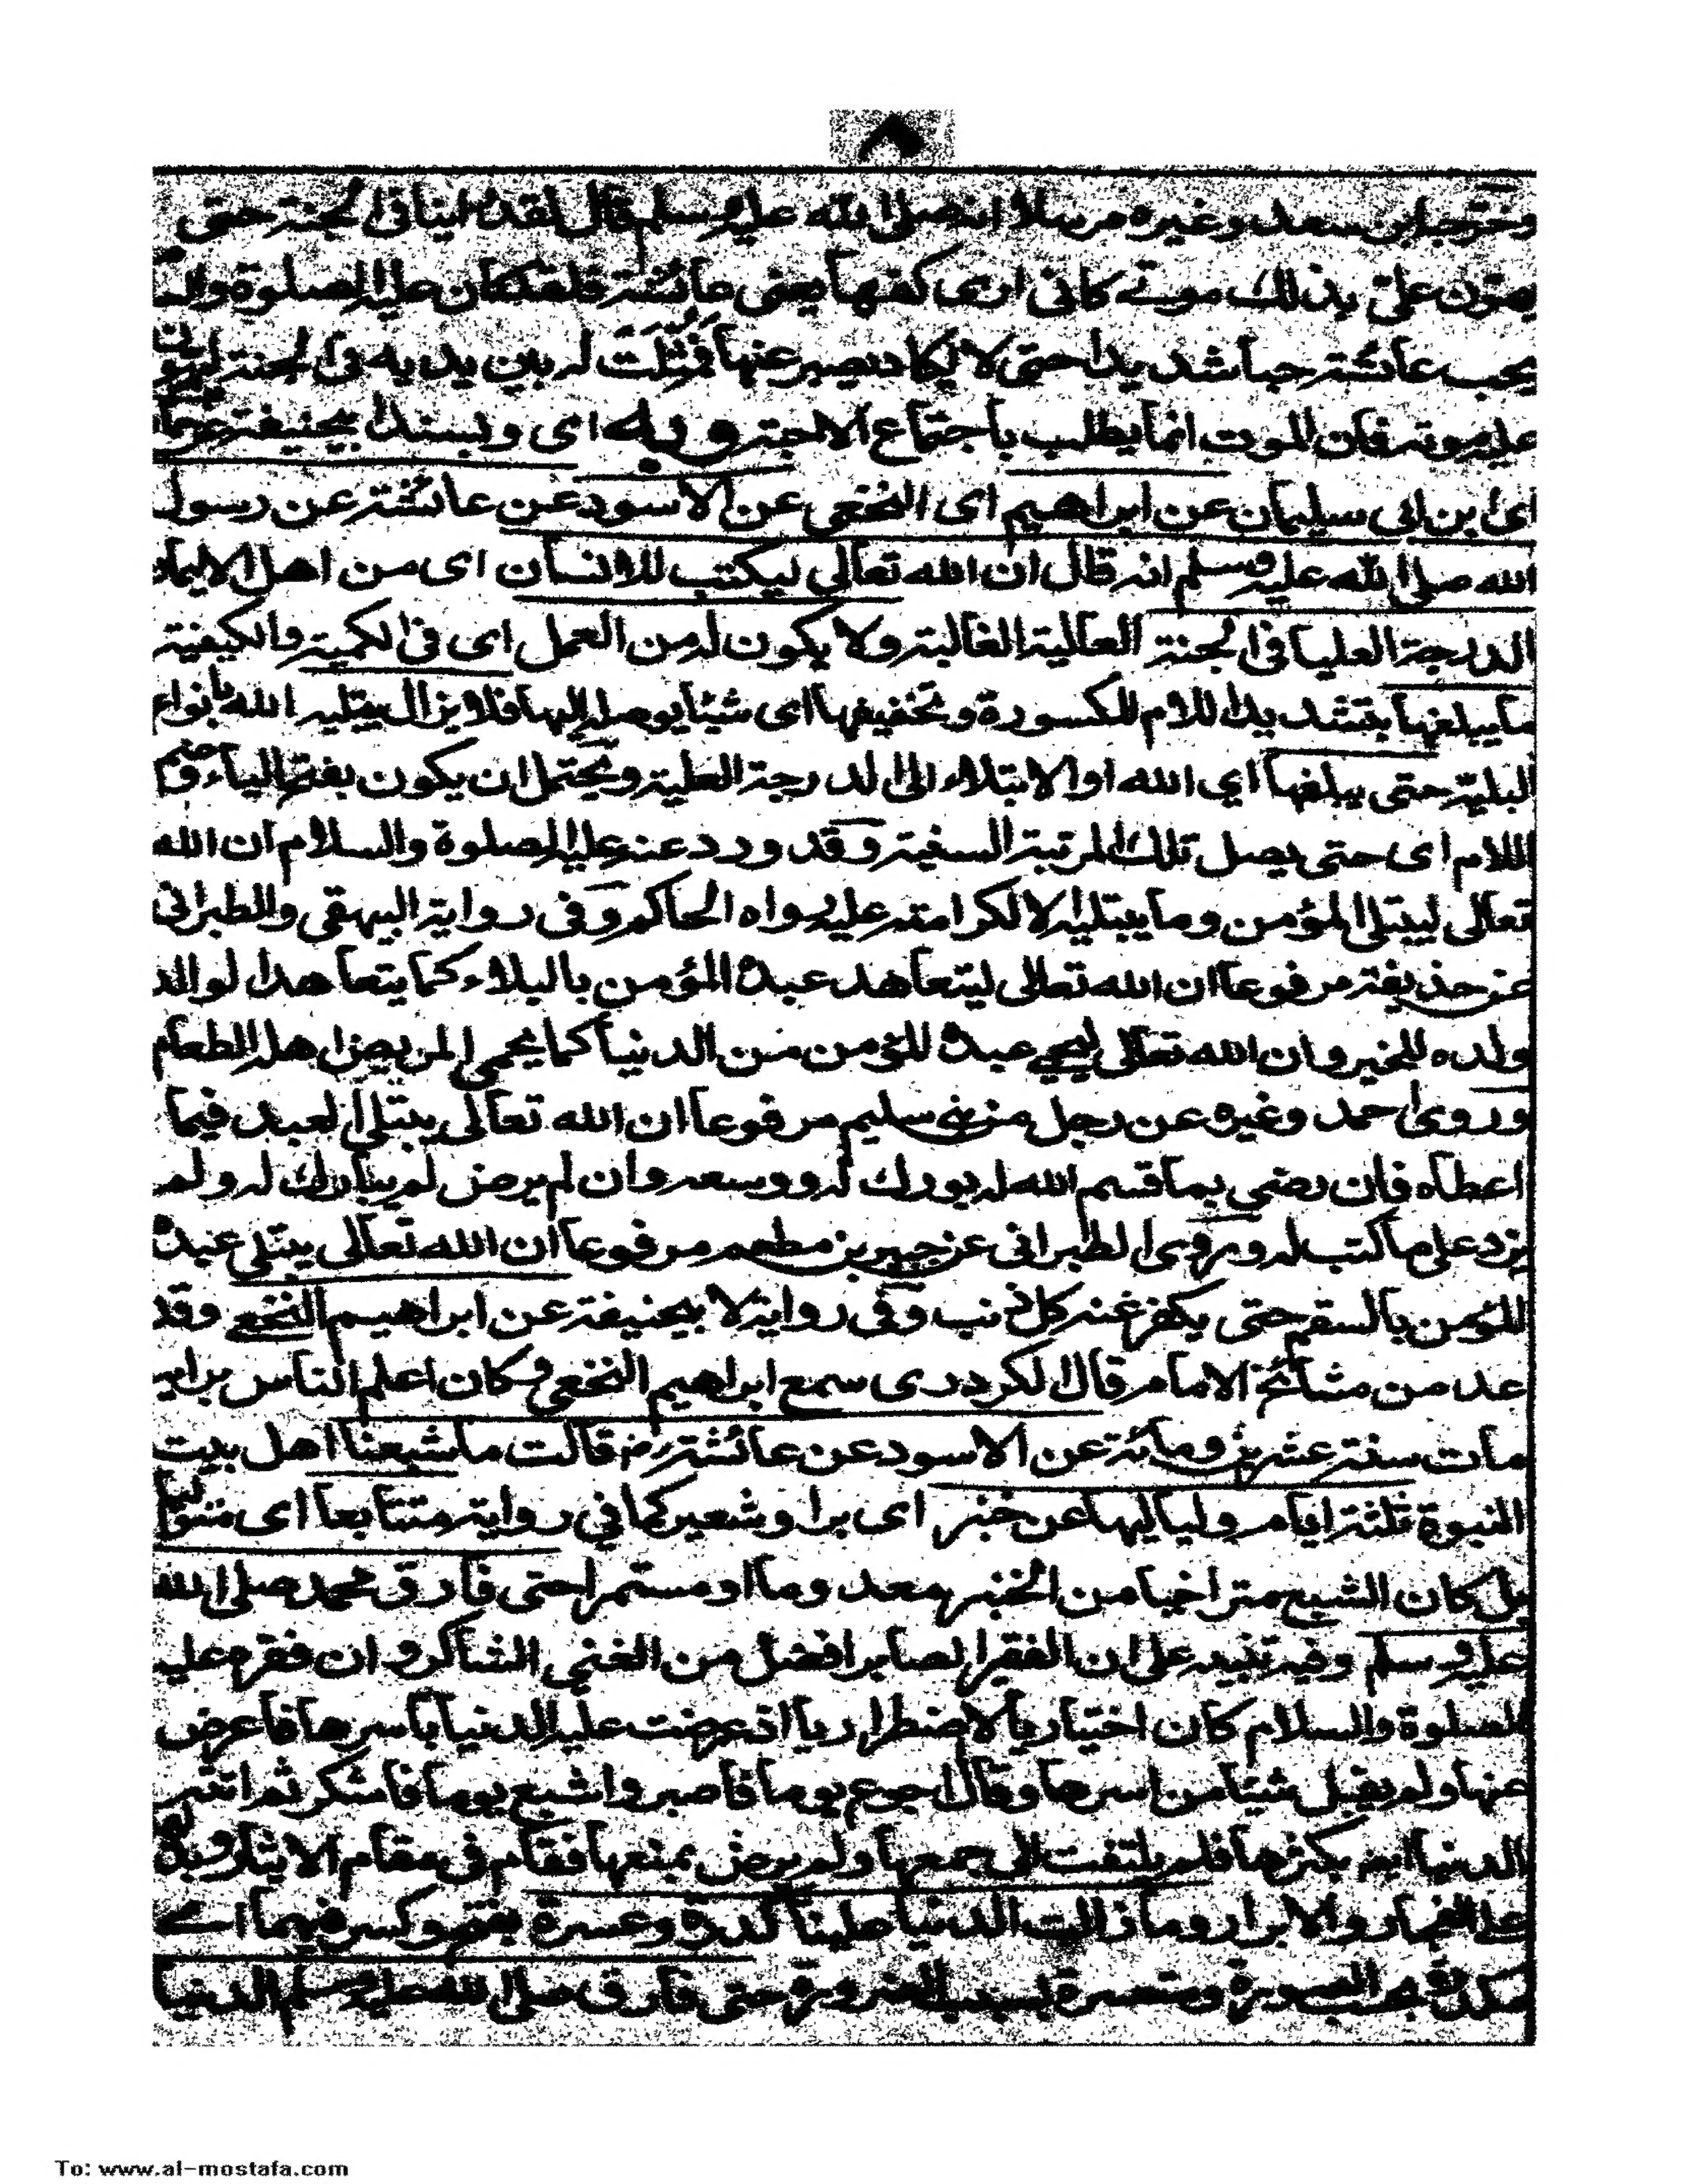 ٨
وخرجه ابن سعد وغيره مرسلا انه صلى الله عليه وسلم قال لقد رايتها في الجنة حتى
يهون على بذلك موتى كانى ارى كفيها يعنى عائشة فلقد كان عليه الصلوة والسلام
يحب عائشة حبا شديدا حتى لا يكاد يصبر عنها فمثلت له بين يديه فى الجنة ليهون
عليه موته فان الموت انما يطلب باجتماع الاحبة وبه اى وبسند ابيحنيفة عن حماد
اى ابن ابى سليمان عن ابراهيم اى النخعى عن الاسود عن عائشة عن رسول
الله صلى الله عليه وسلم انه قال ان الله تعالى ليكتب للانسان اى من اهل الايمان
الدرجة العليا فى الجنة العالية الغالية ولا يكون له من العمل اى فى الكمية والكيفية
ما يبلغها بتشديد اللام المكسورة وتخفيفها اى شيئا يوصله اليها فلا يزال يبتليه الله بانواع
البلية حتى يبلغها اي الله او الابتلاء الى الدرجة العلية ويحتمل ان يكون بفتح الياء وضم
اللام اى حتى يصل تلك المرتبة السنية وقد ورد عنه عليه الصلوة والسلام ان الله
تعالى ليبتلى المؤمن وما يبتليه الا لكرامته عليه رواه الحاكم وفى رواية البيهقى والطبرانى
عن حذيفة مرفوعا ان الله تعالى ليتعاهد عبده المؤمن بالبلاء كما يتعاهد الوالد
ولده للخير وان الله تعالى ليحمي عبده المؤمن من الدنيا كما يحمى المريض اهله الطعام
وروى احمد وغيره عن رجل من بنى سليم مرفوعا ان الله تعالى يبتلى العبد فيما
اعطاه فان رضى بما قسم الله له بورك له ووسعه وان لم يرض لم يبارك له ولم
يزد على ما كتب له وروى الطبرانى عن جبير بن مطعم مرفوعا ان الله تعالى يبتلى عبده
المؤمن بالسقم حتى يكفر عنه كل ذنب وفى رواية لابيحنيفة عن ابراهيم النخعي وقد
عد من مشائخ الامام قال الكردرى سمع ابراهيم النخعى وكان اعلم الناس برايه
مات سنة عشرين ومائة عن الاسود عن عائشة رض قالت ما شبعنا اهل بيت
النبوة ثلثة ايام ولياليها عن خبز اى بر او شعير كما في رواية متتابعا اى متواليا
بل كان الشبع متراخيا من الخبز بعد وما او مستمرا حتى فارق محمد صلى الله
عليه وسلم وفيه تنبيه على ان الفقير الصابر افضل من الغنى الشاكر وان فقره عليه
الصلوة والسلام كان اختياريا لا اضطراريا اذ عرضت عليه الدنيا باسرها فاعرض
عنها ولم يقبل شيئا من اسرها وقال اجوع يوما فاصبر واشبع يوما فاشكر ثم اتته
الدنيا بكثرها فلم يلتفت الى جمعها ولم يرض بمنعها فقام فى مقام الايثار وبذله
على الفجار والابرار وما زالت الدنيا علينا كدرة وعسرة بفتح وكسر فيهما اے
مكدرة بحسب الصورة ومتعسرة بسبب الضرورة حتى فارق صلى الله عليه وسلم الدنيا
To: www.al-mostafa.com